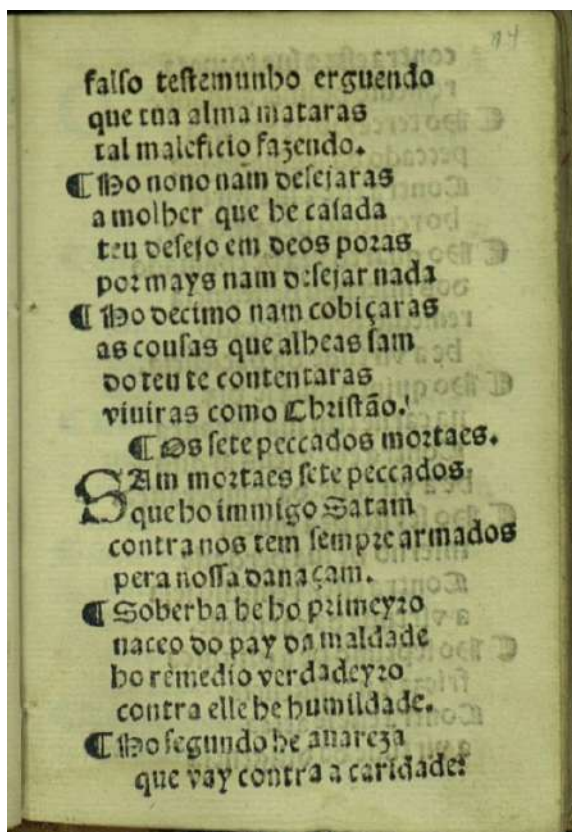 falso testemunho erguendo
que tua alma mataras
tal maleficio fazendo.
¶ Ho nono nam desejaras
a molher que he casada
teu desejo em deos poras
por mays nam desejar nada
¶ Ho decimo nam cobiçaras
as cousas que alheas sam
do teu te contentaras
viuiras como Christão.
¶ Os sete peccados mortaes.
SAm mortaes sete peccados
que ho immigo Satam
contra nos tem sempre armados
pera nossa danaçam.
¶ Soberba he ho primeyro
naceo do pay da maldade
ho remedio verdadeyro
contra elle he humildade.
¶ Ho segundo he auareza
que vay contra a caridade: